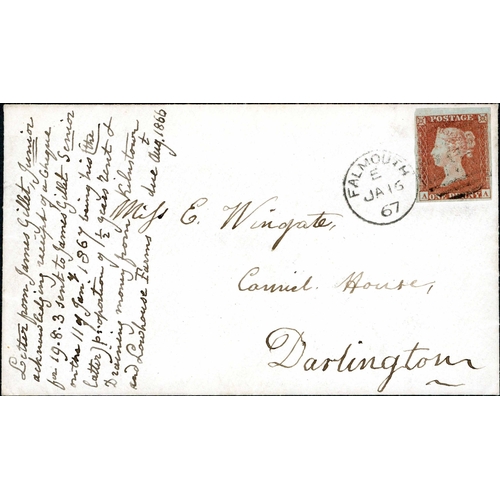 Letter from James Gillet, Junior
acknowledging receipt of a cheque
for 19.8.3 sent to James Gillet Senior
on the 11 of Jany 1867 being his (the
latter) propotion of 1/2 years rent &
Draining money from
and Lowhouse Farms due Augt 1866
Miss E. Wingate,
House,
Darlington
FALMOUTH
E
JA 16
67
POSTAGE
A ONE PENNY A